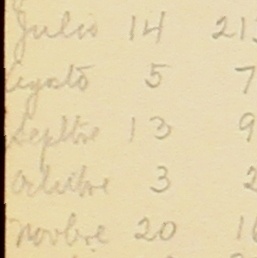 Julio 14 213
Agosto 5 7
Septbre 13 9
Octubre 3 2
Novbre 20